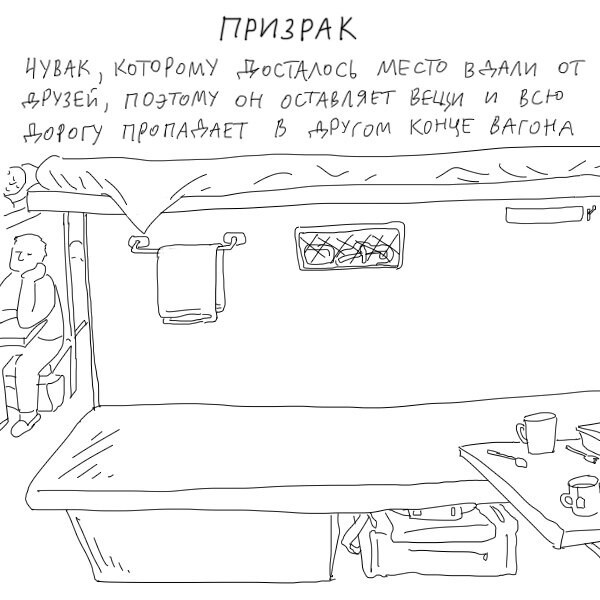 ПРИЗРАК
ЧУВАК, КОТОРОМУ ДОСТАЛОСЬ МЕСТО ВДАЛИ ОТ
ДРУЗЕЙ, ПОЭТОМУ ОН ОСТАВЛЯЕТ ВЕЩИ И ВСЮ
ДОРОГУ ПРОПАДАЕТ В ДРУГОМ КОНЦЕ ВАГОНА